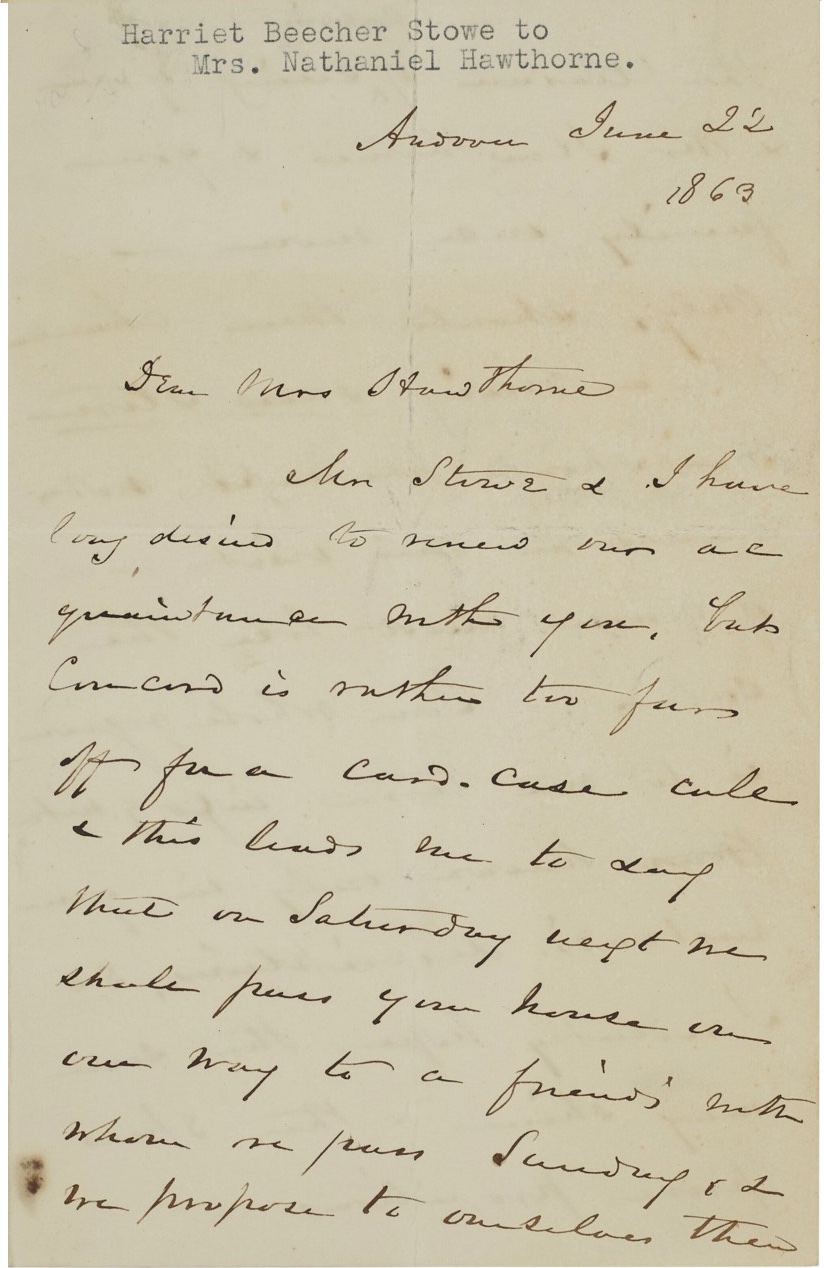 Harriet Beecher Stowe to
Mrs. Nathaniel Hawthorne.
Andover June 22
1863
Dear Mrs Hawthorne
Mr Stowe & I have
long desired to renew our ac
quaintance with you, but
Concord is rather too far
off for a card-case call
& this leads me to say
that on Saturday next we
shall pass your house on
our way to a friend's with
whom we pass Sunday, &
we propose to ourselves then